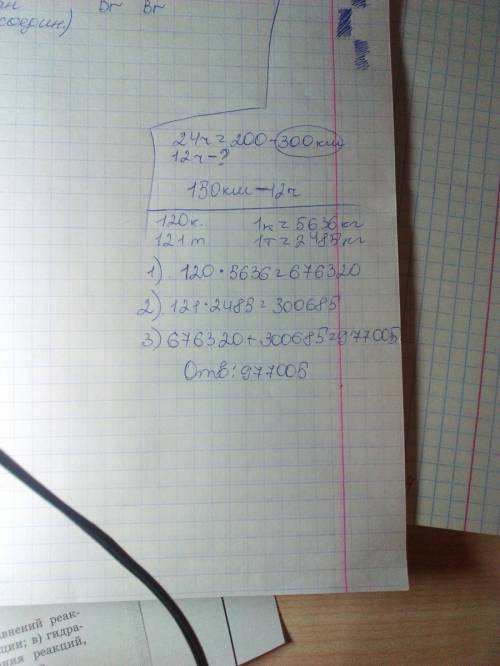 Br Br
соедин.)
24ч = 200-300км
12ч - ?
150км - 12ч
120к. 1к = 5636кг
121т 1т = 2485кг
1) 120·5636=676320
2) 121·2485=300685
3) 676320+300685=977005
Отв: 977005
внений реак-
ции; в) гидра-
ния реакций,